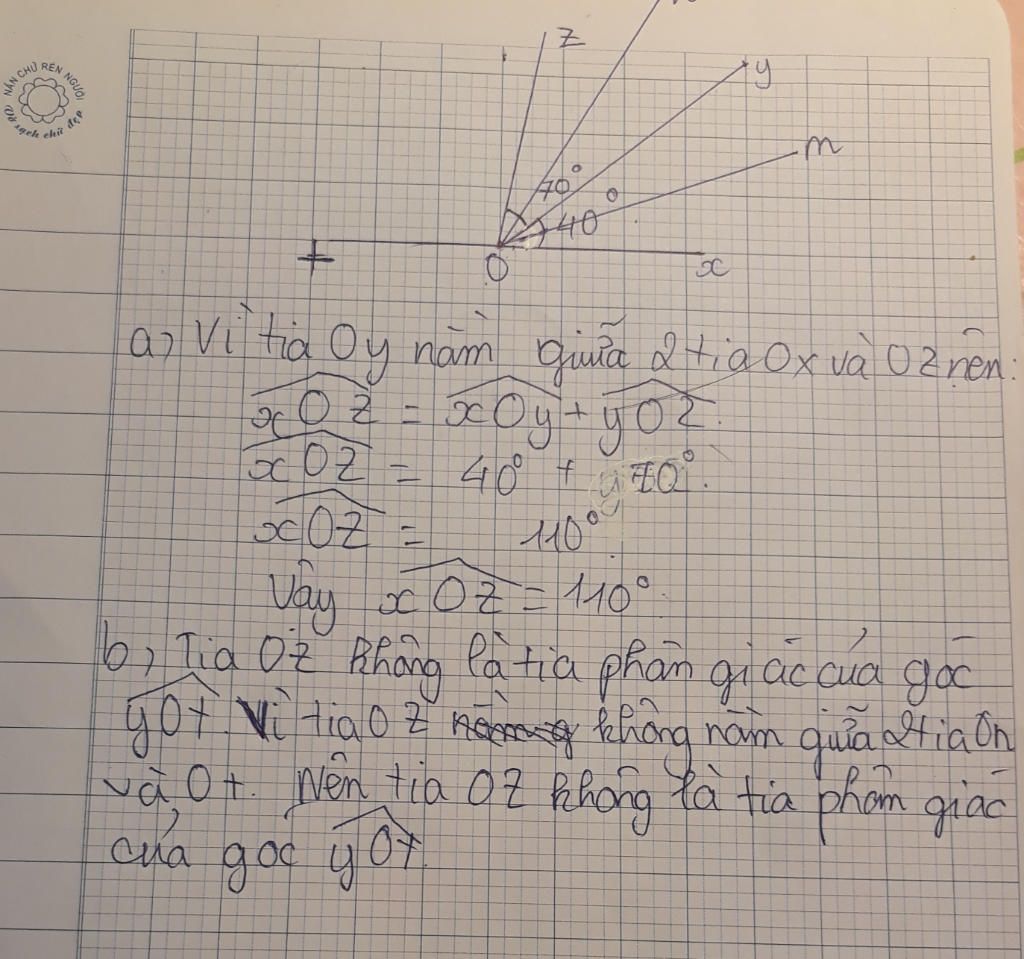 NẮN CHỮ RÈN NGƯỜI
Vở sạch chữ đẹp
z
y
m
70°
40°
t
O
x
a, Vì tia Oy nằm giữa 2 tia Ox và Oz nên:
xOz = xOy + yOz.
xOz = 40° + 70°.
xOz = 110°.
Vậy xOz = 110°.
b, Tia Oz không là tia phân giác của góc
yOt. Vì tia Oz không nằm giữa 2 tia On
và Ot. Nên tia Oz không là tia phân giác
của góc yOt.